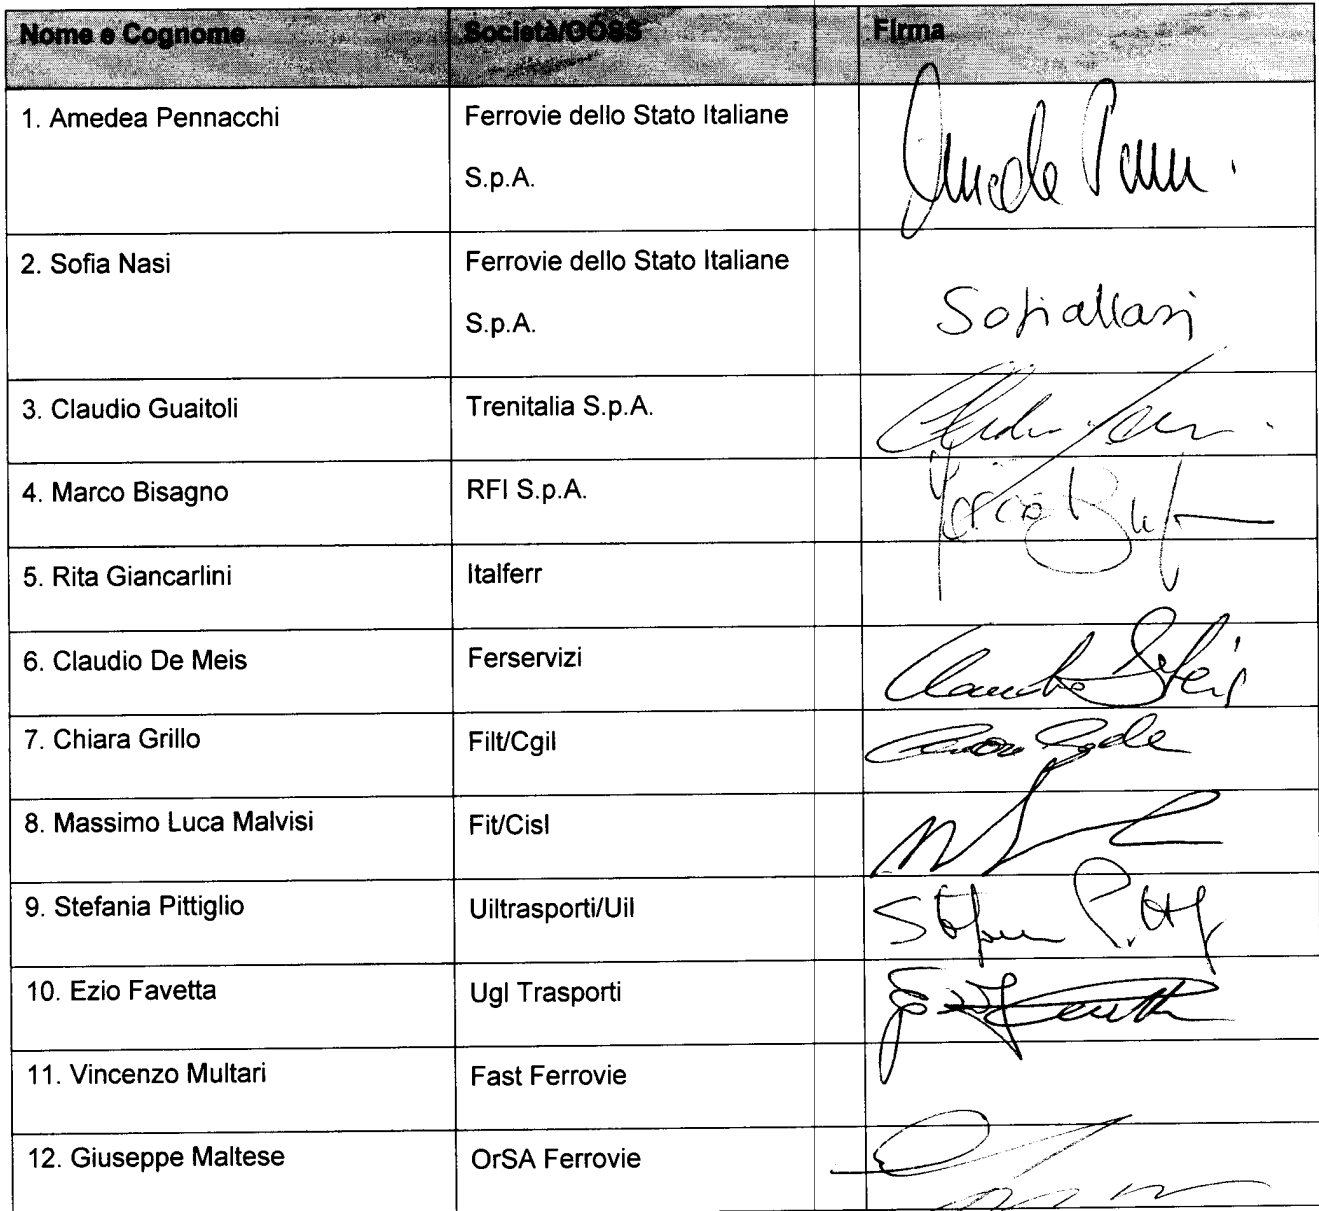 Nome e Cognome Società/OOSS Firma
1. Amedea Pennacchi Ferrovie dello Stato Italiane
S.p.A.
2. Sofia Nasi Ferrovie dello Stato Italiane
S.p.A. Sofia Nasi
3. Claudio Guaitoli Trenitalia S.p.A.
4. Marco Bisagno RFI S.p.A.
5. Rita Giancarlini Italferr
6. Claudio De Meis Ferservizi
7. Chiara Grillo Filt/Cgil
8. Massimo Luca Malvisi Fit/Cisl
9. Stefania Pittiglio Uiltrasporti/Uil
10. Ezio Favetta Ugl Trasporti
11. Vincenzo Multari Fast Ferrovie
12. Giuseppe Maltese OrSA Ferrovie